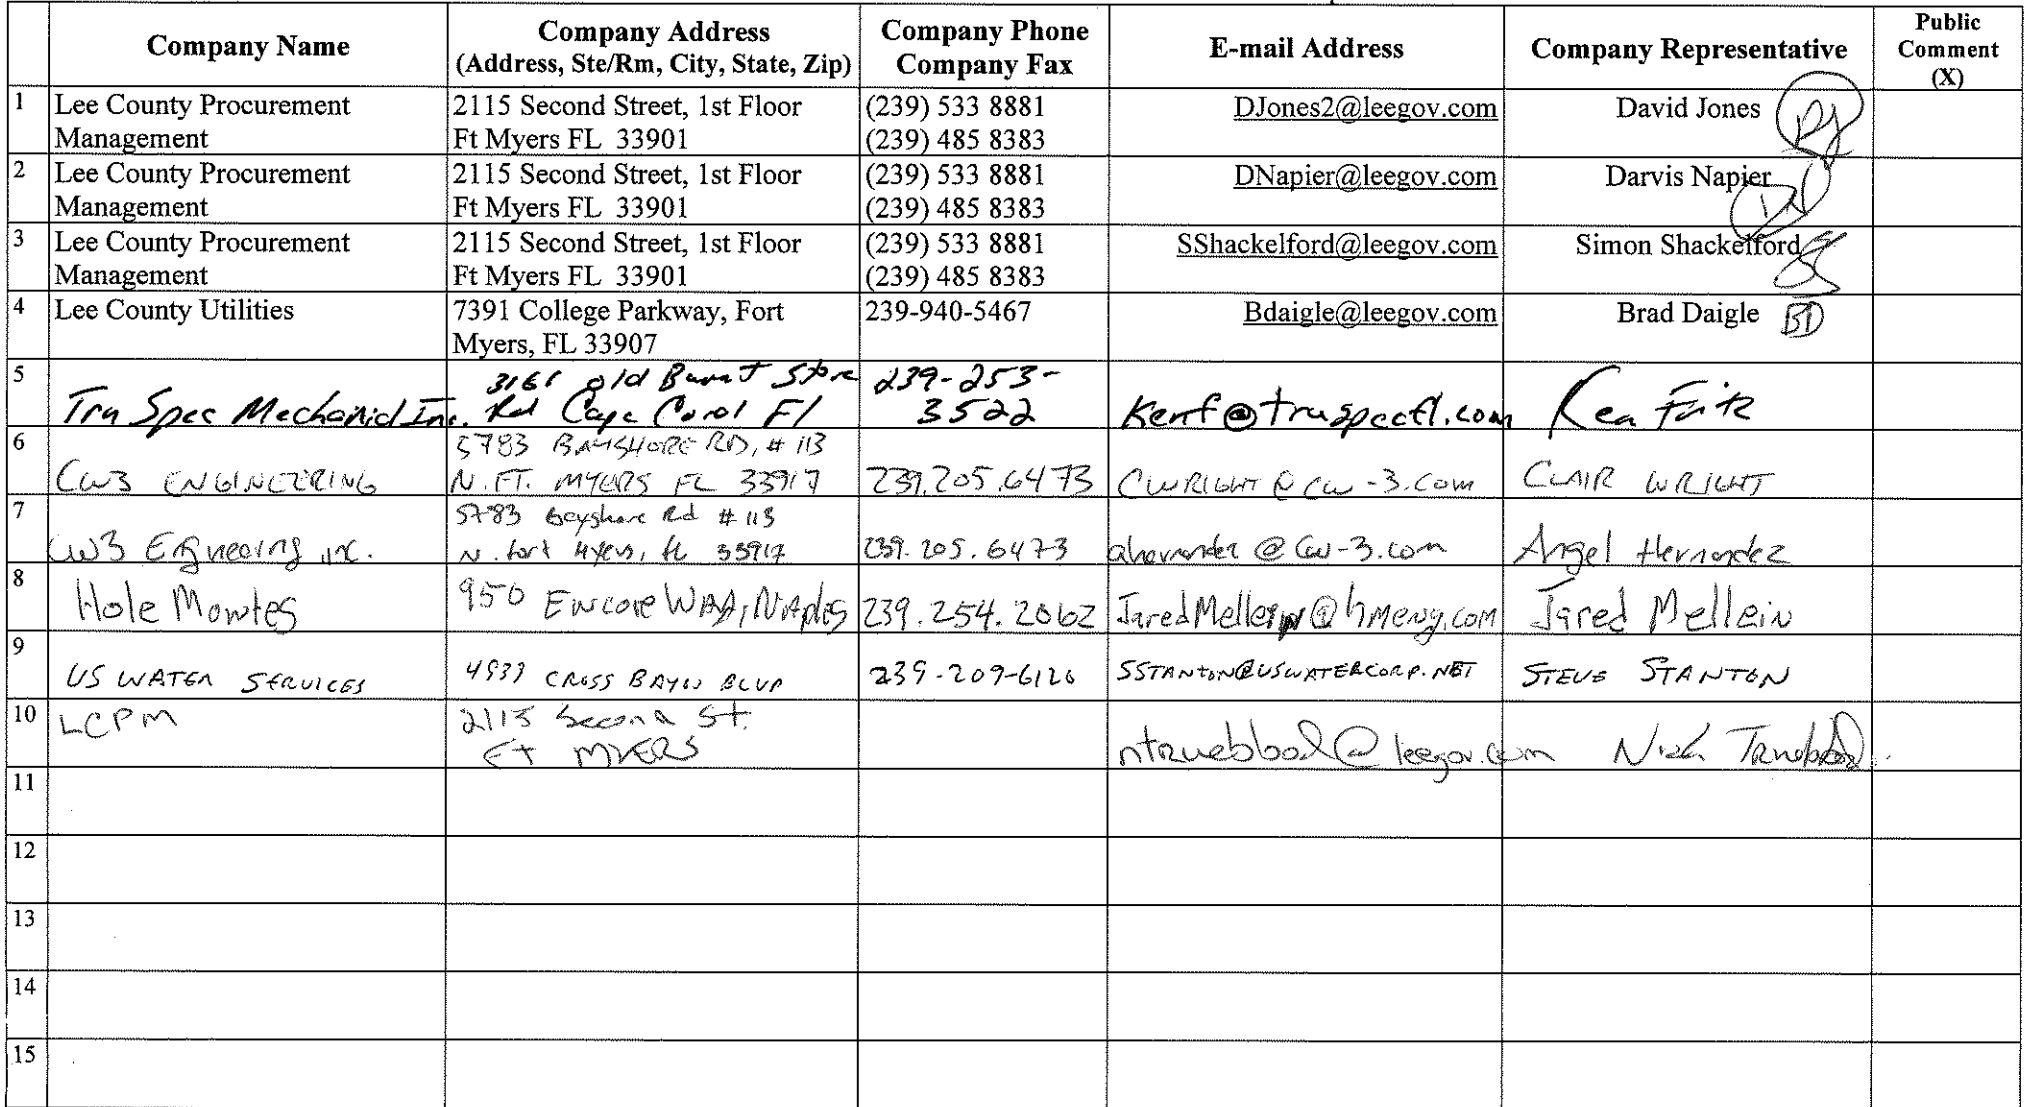 Company Name
Company Address
(Address, Ste/Rm, City, State, Zip)
Company Phone
Company Fax
E-mail Address
Company Representative
Public
Comment
(X)
1
Lee County Procurement
Management
2115 Second Street, 1st Floor
Ft Myers FL 33901
(239) 533 8881
(239) 485 8383
DJones2@leegov.com
David Jones
DJ
2
Lee County Procurement
Management
2115 Second Street, 1st Floor
Ft Myers FL 33901
(239) 533 8881
(239) 485 8383
DNapier@leegov.com
Darvis Napier
DN
3
Lee County Procurement
Management
2115 Second Street, 1st Floor
Ft Myers FL 33901
(239) 533 8881
(239) 485 8383
SShackelford@leegov.com
Simon Shackelford
4
Lee County Utilities
7391 College Parkway, Fort
Myers, FL 33907
239-940-5467
Bdaigle@leegov.com
Brad Daigle
BD
5
Tru Spec Mechanicl Inc.
old Burnt Store
Rd Cape Coral Fl
239-253-
3522
Kenf@truspecfl.com
Ken Fritz
6
CW3 ENGINEERING
5783 BAYSHORE RD, # 113
N. FT. MYERS FL 33917
239.205.6473
CWRIGHT@CW-3.com
CLAIR WRIGHT
7
CW3 Engineering, inc.
5783 Bayshore Rd # 113
N. fort Myers, fl 33917
239.205.6473
ahernandez@CW-3.com
Angel Hernandez
8
Hole Montes
950 Encore Way, Naples
239.254.2062
JaredMellein@hmeng.com
Jared Mellein
9
US WATER SERVICES
4939 CROSS BAYOU BLVD
239-209-6120
SSTANTON@USWATERCORP.NET
STEVE STANTON
10
LCPM
2115 Second St.
Ft MYERS
ntrueblood@leegov.com
Nick Trueblood
11
12
13
14
15